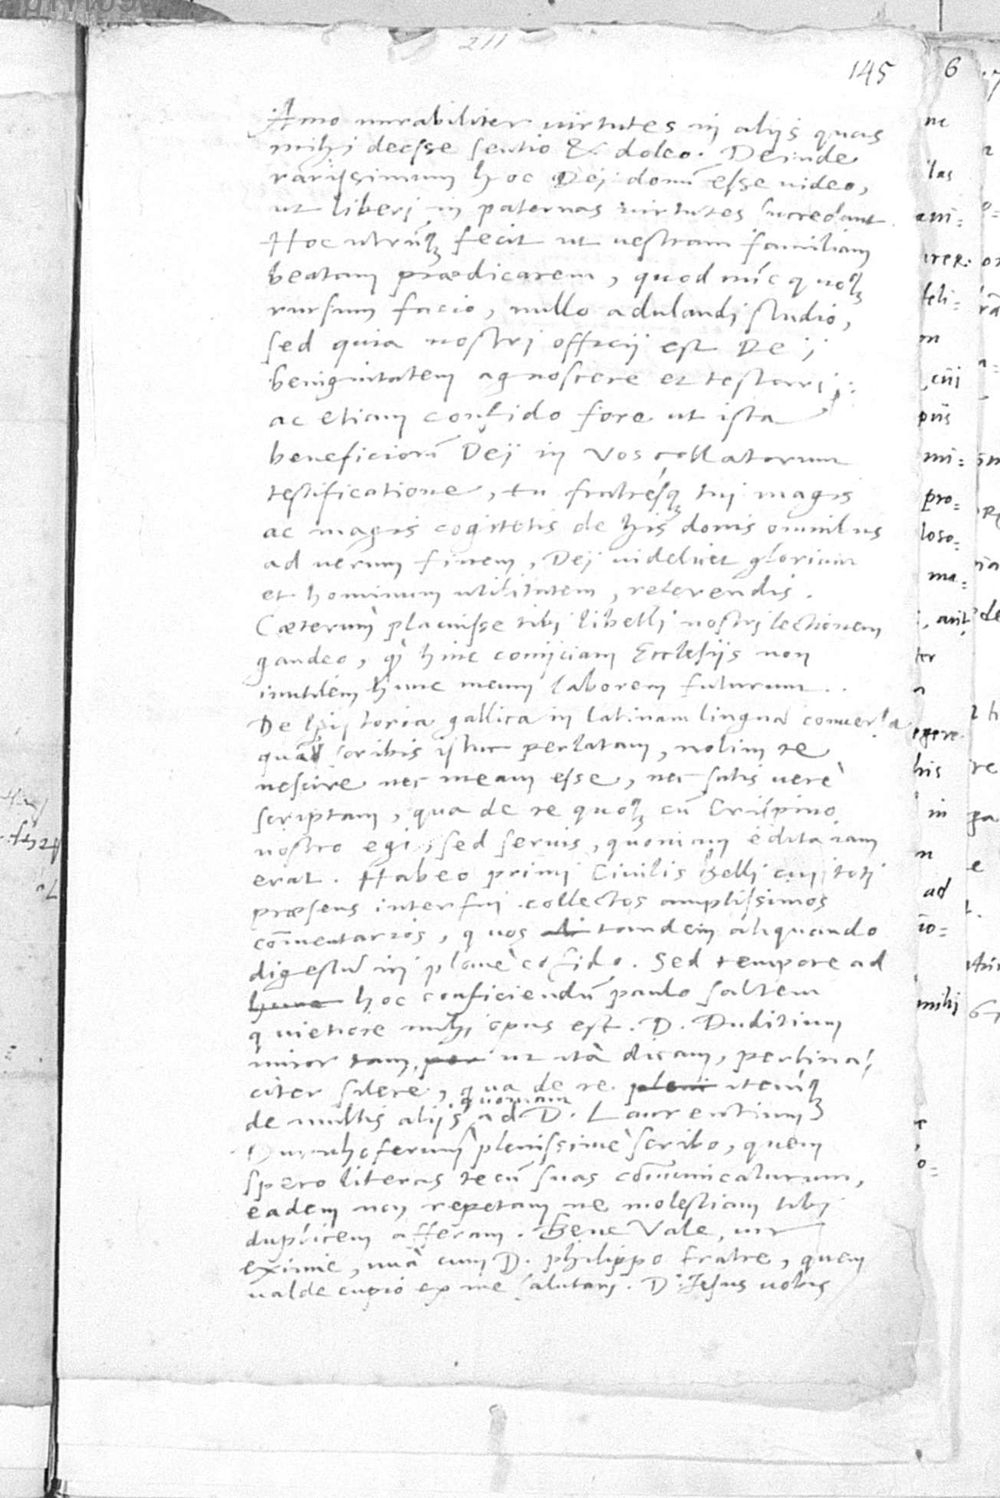 211
145
Amo mirabiliter virtutes in aliis quas
mihi deesse sentio & doleo. Deinde
rarissimum hoc Dei donū esse video,
ut liberi in paternas virtutes succedant.
Hoc utrūq fecit ut vestram familiam
beatam prædicarem, quod nūc quoq
rursum facio, nullo adulandi studio,
sed quia nostri officii est Dei
benignitatem agnoscere et testari;
ac etiam confido fore ut ista
beneficiorū Dei in vos collatorum
testificatione, tu fratresq tui magis
ac magis cogitetis de his donis omnibus
ad verum finem, Dei videlicet gloriam
et hominum utilitatem, referendis.
Cæterum placuisse tibi libelli nostri lectionem
gaudeo, hinc coniiciam Ecclesiis non
inutilem hunc meum laborem futurum.
De historia gallica in latinam linguā conversa
quā scribis istuc perlatam, nolim te
nescire nec meam esse, nec satis verè
scriptam, qua de re quoq cū Crispino
nostro egi, sed serius, quoniam edita iam
erat. Habeo primi Civilis belli cui toti
præsens interfui collectos amplissimos
cōmentarios, quos tandem aliquando
digestū iri planè cōfido. Sed tempore ad
hunc hoc conficiendū paulo saltem
quietiore mihi opus est. D. Duditium
miror tam, per ut ità dicam, pertina-
citer silere, qua de re itemq
quoniam
de multis aliis ad D. Laurentium
Durnhoferum plenissimè scribo, quem
spero literas tecū suas cōmunicaturum,
eadem non repetam ne molestiam tibi
duplicem afferam. Bene Vale, vir
eximie, unà cum D. Philippo fratre, quem
valde cupio ex me salutari. D. Jesus vobis
6